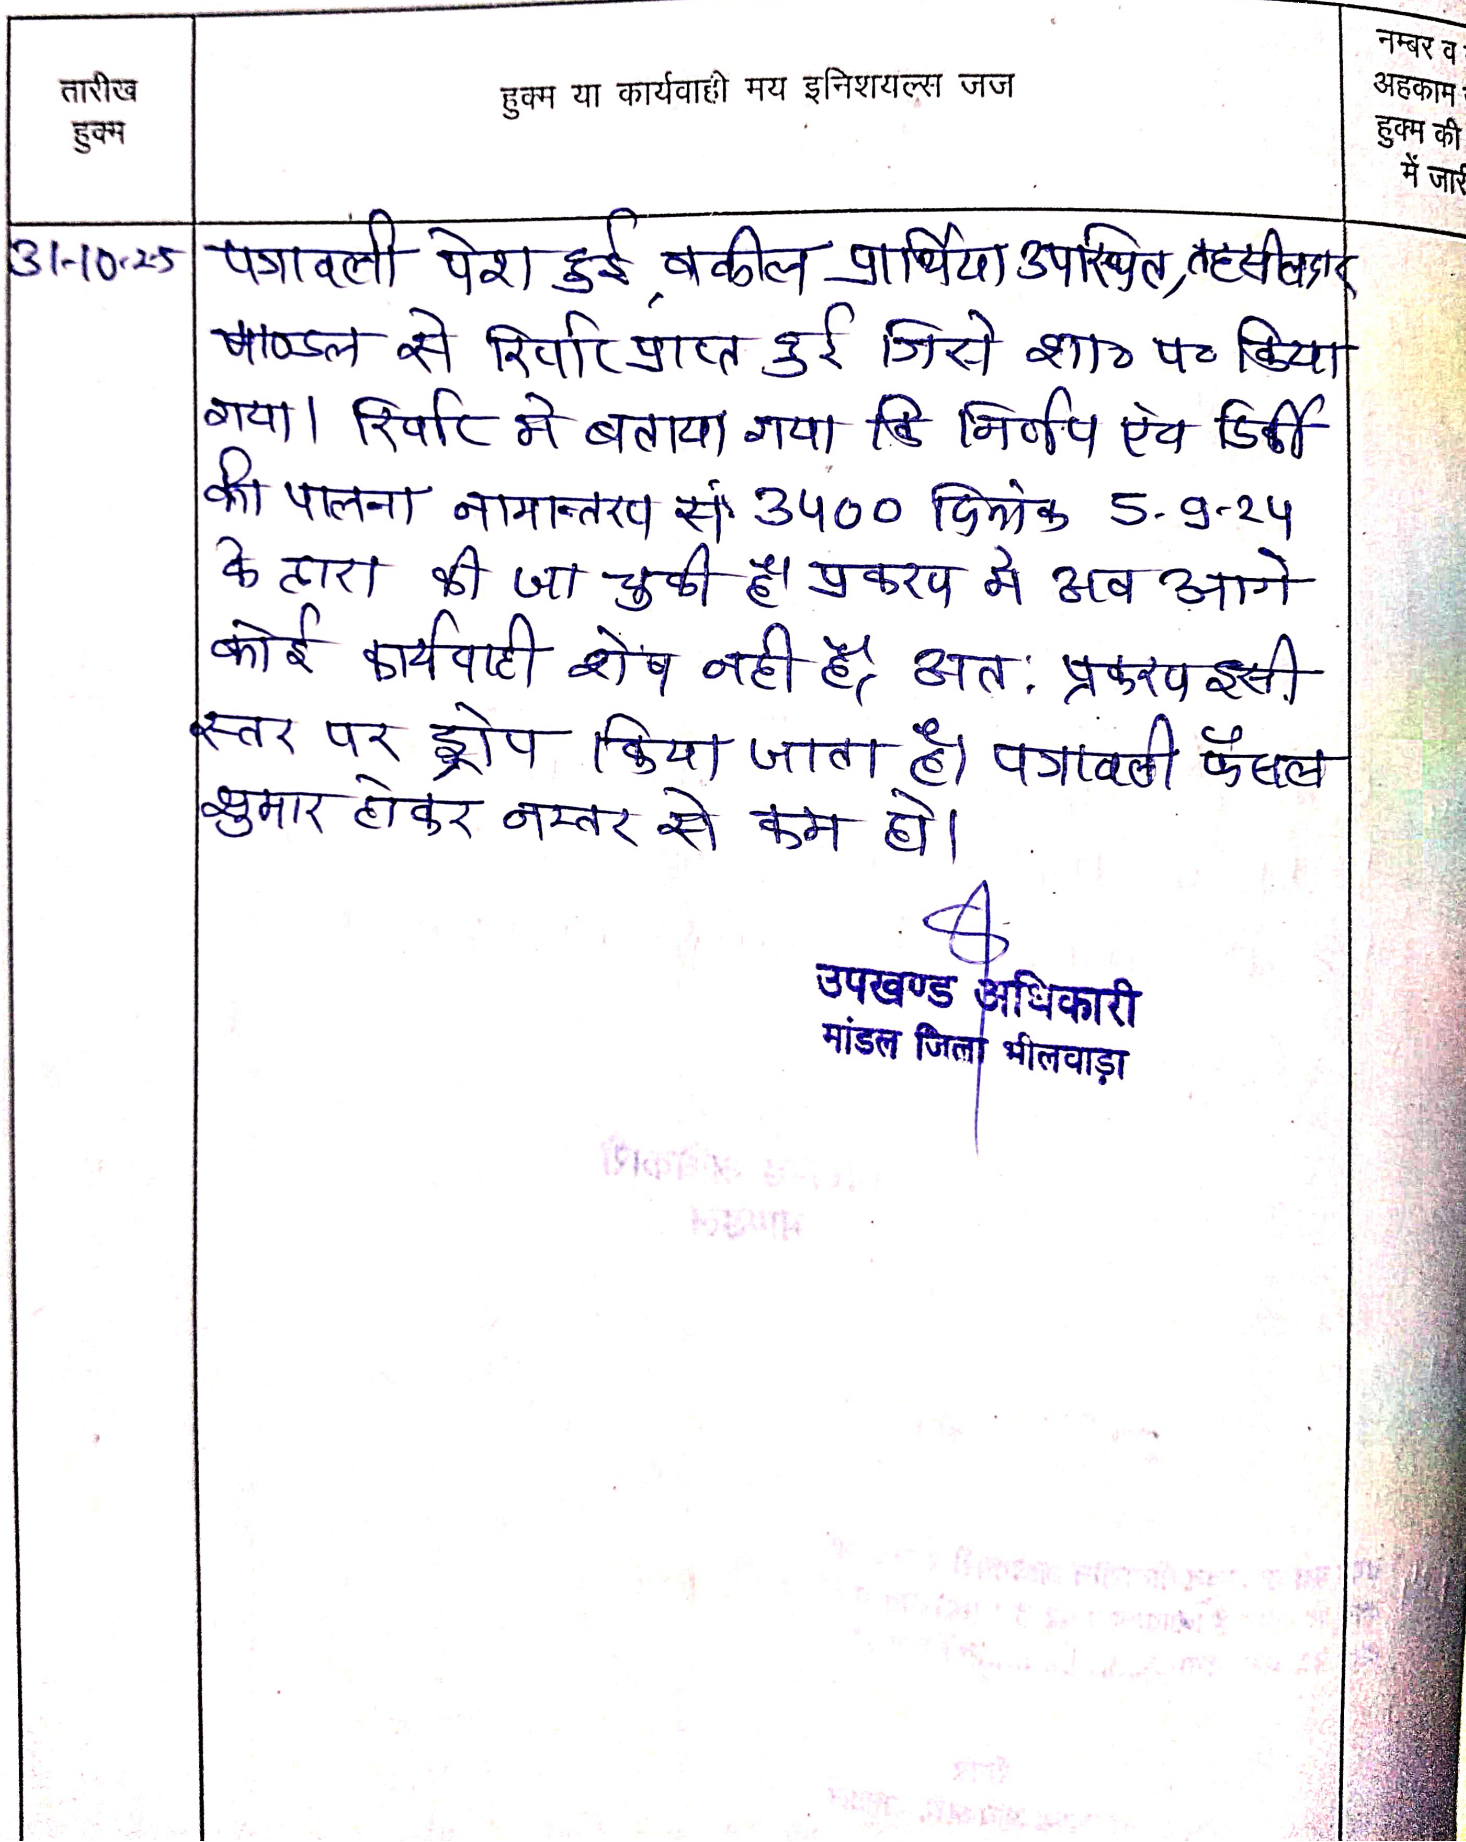 तारीख
हुक्म
हुक्म या कार्यवाही मय इनिशयल्स जज
नम्बर व
अहकाम
हुक्म की
में जारी
31-10-25
पत्रावली पेश हुई, वकील प्रार्थिया उपस्थित, तहसीलदार
माण्डल से रिर्पोट प्राप्त हुई जिसे शा० प० किया
गया। रिर्पोट मे बताया गया कि निर्णय एंव डिक्री
की पालना नामान्तरण सं 3400 दिनांक 5-9-24
के द्वारा की जा चुकी है। प्रकरण मे अब आगे
कोई कार्यवाही शेष नही है, अत: प्रकरण इसी
स्तर पर ड्रोप किया जाता है। पत्रावली फैसल
शुमार होकर नम्बर से कम हो।
उपखण्ड अधिकारी
मांडल जिला भीलवाड़ा